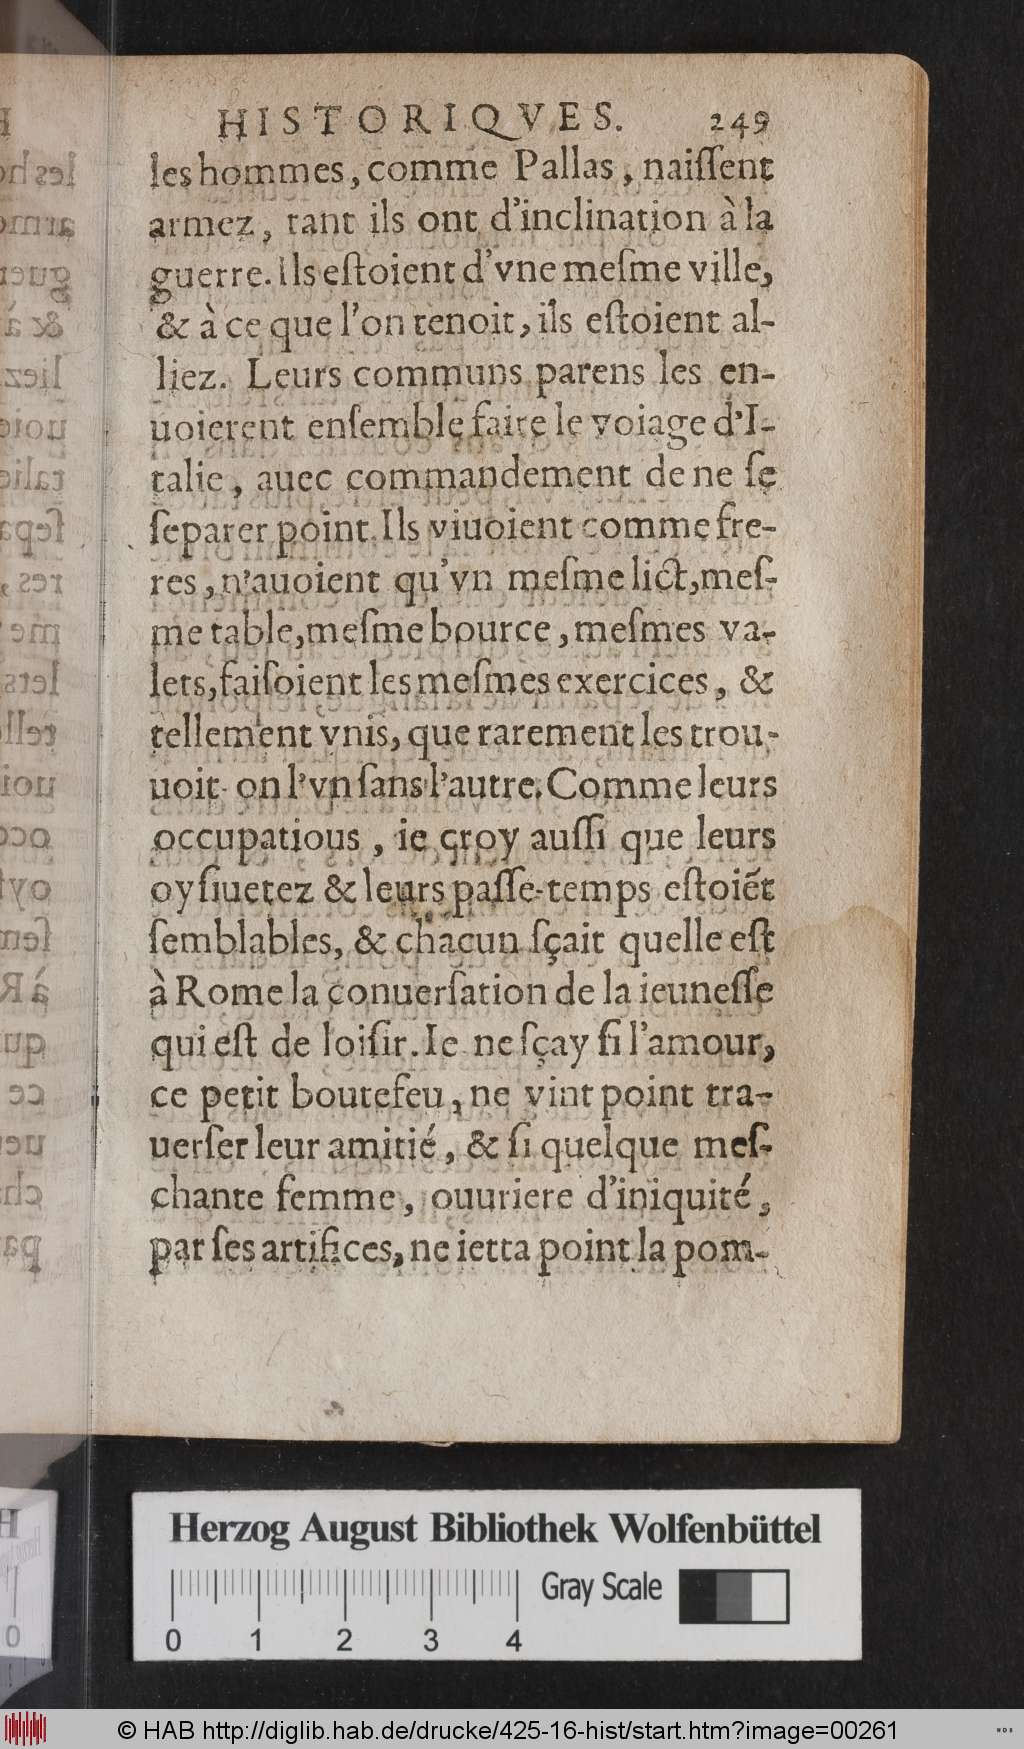 HISTORIQVES. 249
les hommes, comme Pallas, naiſſent
armez, tant ils ont d'inclination à la
guerre. Ils eſtoient d'vne meſme ville,
& à ce que l'on tenoit, ils eſtoient al-
liez. Leurs communs parens les en-
uoierent enſemble faire le voiage d'I-
talie, auec commandement de ne ſe
ſeparer point. Ils viuoient comme fre-
res, n'auoient qu'vn meſme lict, meſ-
me table, meſme bource, meſmes va-
lets, faiſoient les meſmes exercices, &
tellement vnis, que rarement les trou-
uoit-on l'vn ſans l'autre. Comme leurs
occupatious, ie croy auſſi que leurs
oyſiuetez & leurs paſſe-temps eſtoiẽt
ſemblables, & chacun ſçait quelle eſt
à Rome la conuerſation de la ieuneſſe
qui eſt de loiſir. Ie ne ſçay ſi l'amour,
ce petit boutefeu, ne vint point tra-
uerſer leur amitié, & ſi quelque meſ-
chante femme, ouuriere d'iniquité,
par ſes artifices, ne ietta point la pom-
Herzog August Bibliothek Wolfenbüttel
Gray Scale
0 1 2 3 4
© HAB http://diglib.hab.de/drucke/425-16-hist/start.htm?image=00261